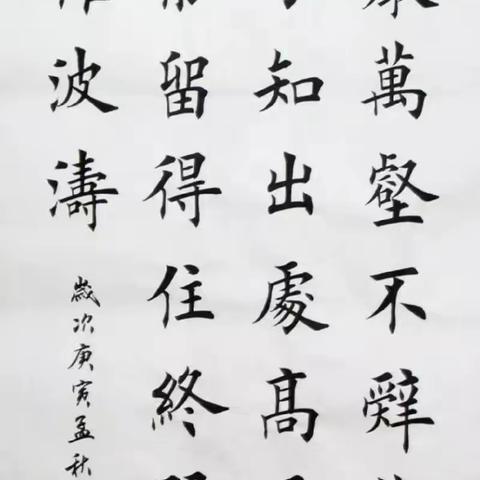 萬壑不辭
知出處高
留得住終
波濤
歲次庚寅孟秋